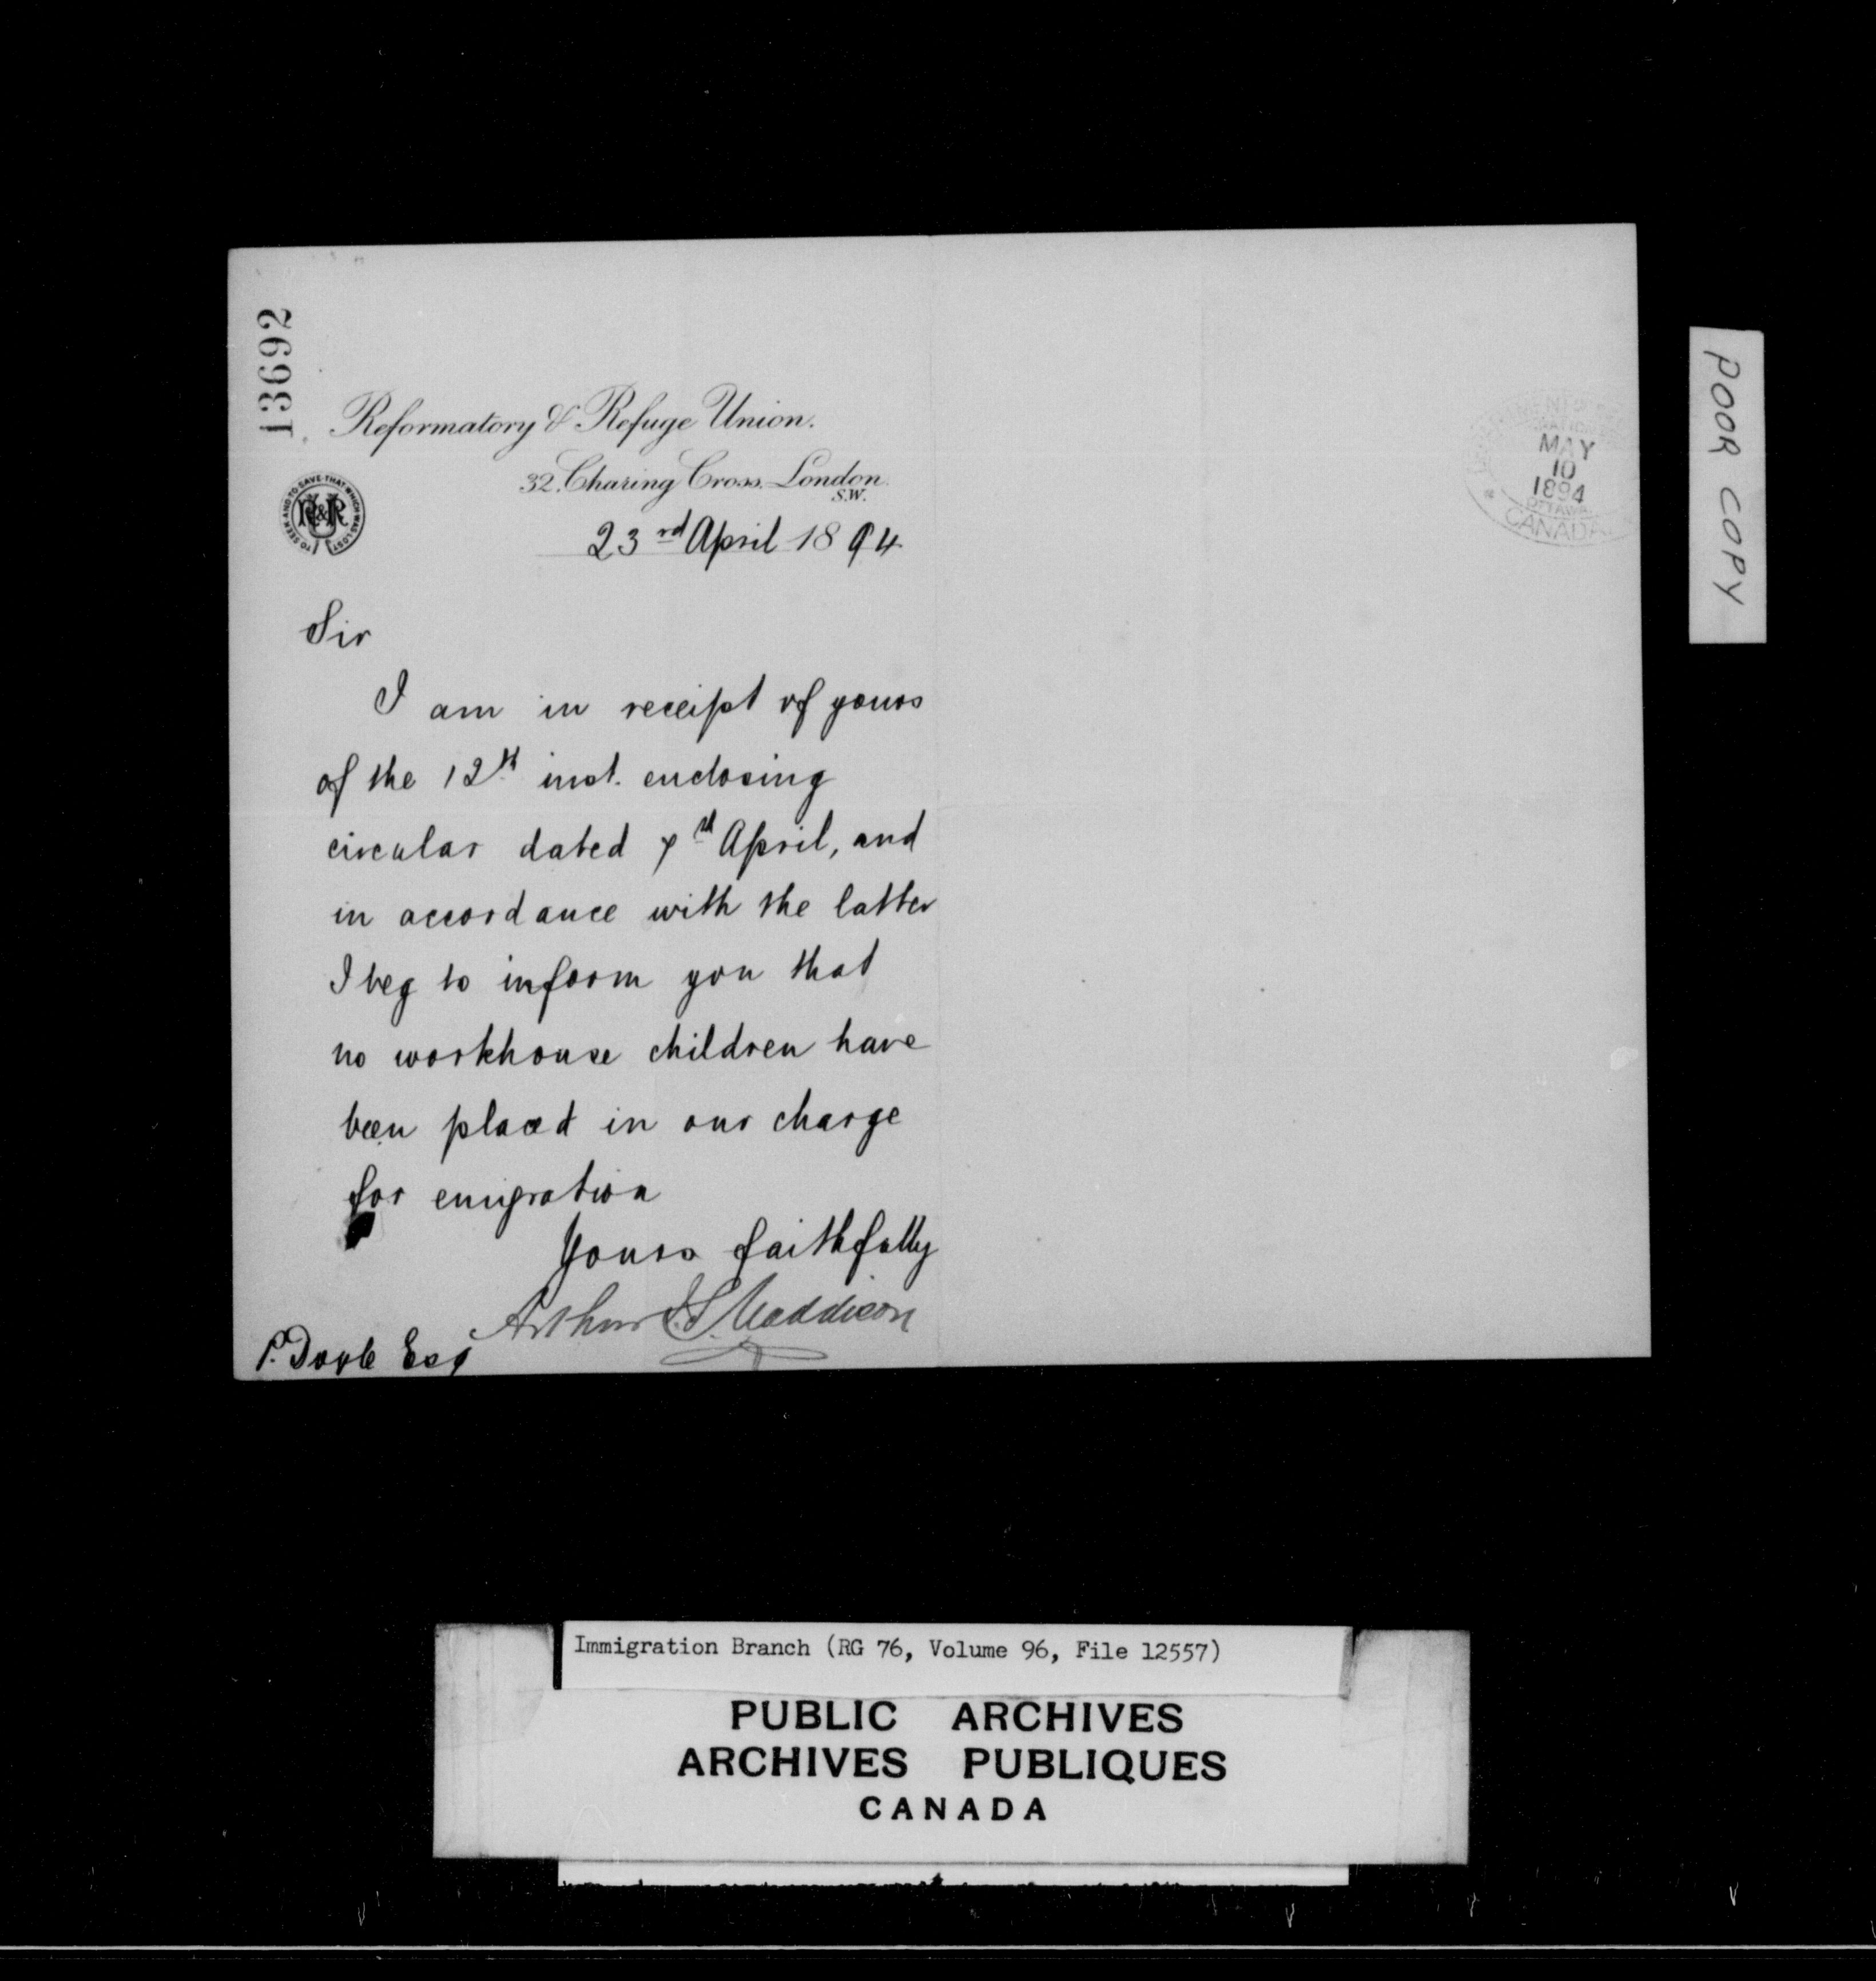 13692
Reformatory & Refuge Union.
32. Charing Cross. London.
S.W.
TO SEEK AND TO SAVE THAT WHICH WAS LOST
R&R
U
23rd April 1894
MAY
10
1894
OTTAWA
CANADA
POOR COPY
Sir
I am in receipt of yours
of the 12th inst. enclosing
circular dated 7th April, and
in accordance with the latter
I beg to inform you that
no workhouse children have
been placed in our charge
for emigration
Yours faithfully
Arthur J. S. Maddison
P. Doyle Esq
Immigration Branch (RG 76, Volume 96, File 12557)
PUBLIC ARCHIVES
ARCHIVES PUBLIQUES
CANADA